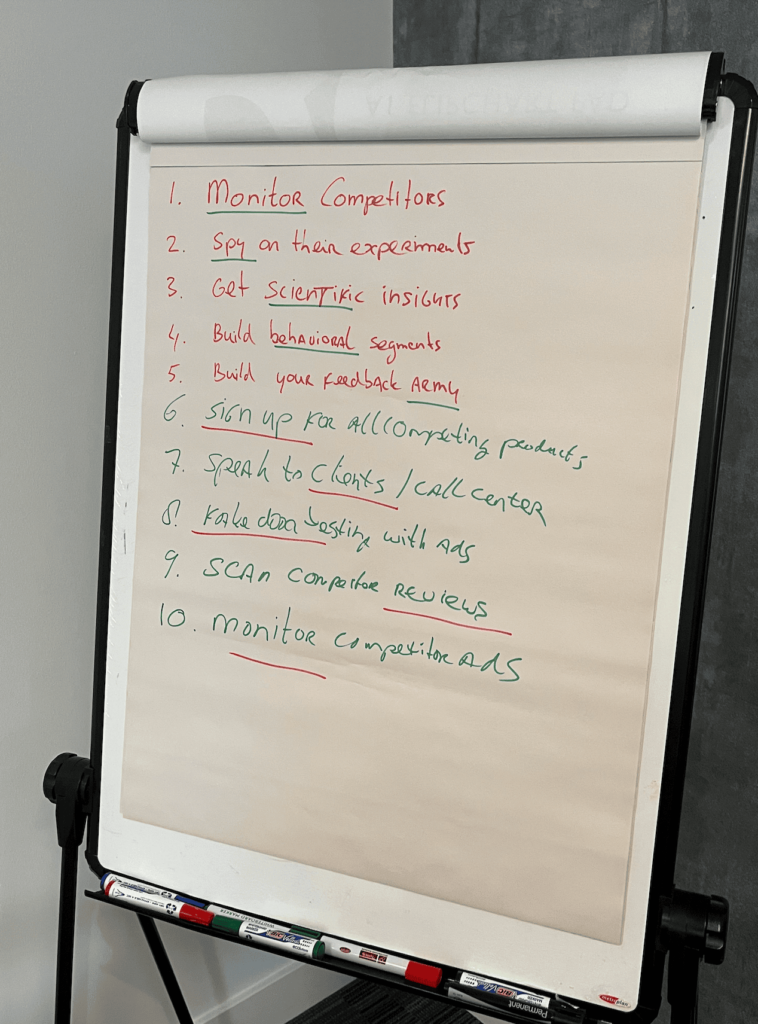 1. Monitor Competitors
2. Spy on their experiments
3. Get Scientific insights
4. Build behavioral segments
5. Build your feedback Army
6. Sign up for all competing products
7. Speak to Clients / Call center
8. Fake door testing with Ads
9. Scan competitor Reviews
10. Monitor competitor Ads
Permanent